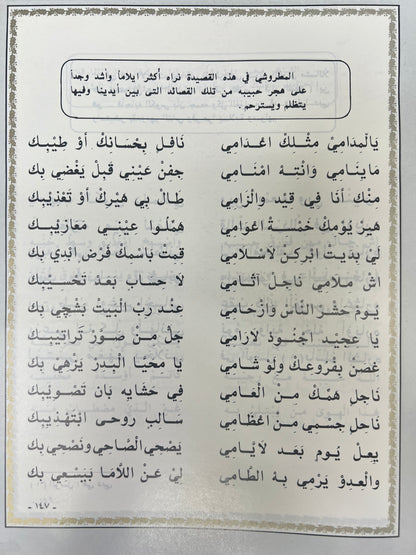 المطروشي في هذه القصيدة نراه أكثر ايلاماً وأشد وجداً
على هجر حبيبه من تلك القصائد التي بين أيدينا وفيها
يتظلم ويسترحم .
يَالْمِدَامِيْ مِثْـلِـكْ اعْـدَامِـي نَافِـلٍ بِحْسَانَـكْ أَوْ طِيْبِـك
مَايِنَامِي وَانْتِـهْ امْنَـامِـي جَفـنْ عَيْنـي قَبـلْ يَغْضـي بِـك
مِنْـكْ أنَا فِي قِيْـد وَالْـزَامِي طَالْ بي هَيْـرِكْ أَوْ تَعْذِيْبِـك
هَيـرْ يُوْمِـكْ خَمْسَـةْ اعْوَامِي هَمْلُـوا عِيْنِـي مَعَازِيْبِـك
لَيْ بَدَيْـتْ ابْرِكـنْ لَاسْـلَامِي قِمِـتْ بَاسْمِـكْ فَرْضْ ابْدِي بِك
اشْ مَلَامِي نَاجِـلْ آثَـامِـي لَا حِسَـابْ بَعـدْ تَحْسِيْبِـك
يُوم حَشْـرْ النَّـاسْ وَازْحَـامِي عِنْـد رَبْ الْبَيْـتْ بَشْجِـي بِـك
يَا عِجِيْـدْ اجْنُـودْ لَارَامِـي جَلْ مَـنْ صَـوَّرْ تَرَاتِيْبِـك
غُصُـنْ بِفْرُوعَـكْ وِلَوْ شَـامِي يَا مِحَيَّـا الْبَـدِرْ يَزْهِـيْ بِـك
نَاجِلٍ هَمَّـكْ مِـنْ الْعَـامِي فِي حَشَايَه بَـانْ تَصْوِيْبِـك
نَاحِلٍ جِسْمِـي مِـنْ اعْظَـامِي سَـالِـبٍ رُوحـى ابْتَهْذِيْبِـك
يِعِـلْ يِـومٍ بَعـدْ لَايَّـامِي يَصْحِي الصَّـاحِـي وَنَصْحِي بِـك
وَالْعِدوْ يَرْمِـي بِـهْ الطَّـامِي لَيْ عَـنْ اللَّامَـا بَيَسْعِـي بِـك
- ١٤٧ -